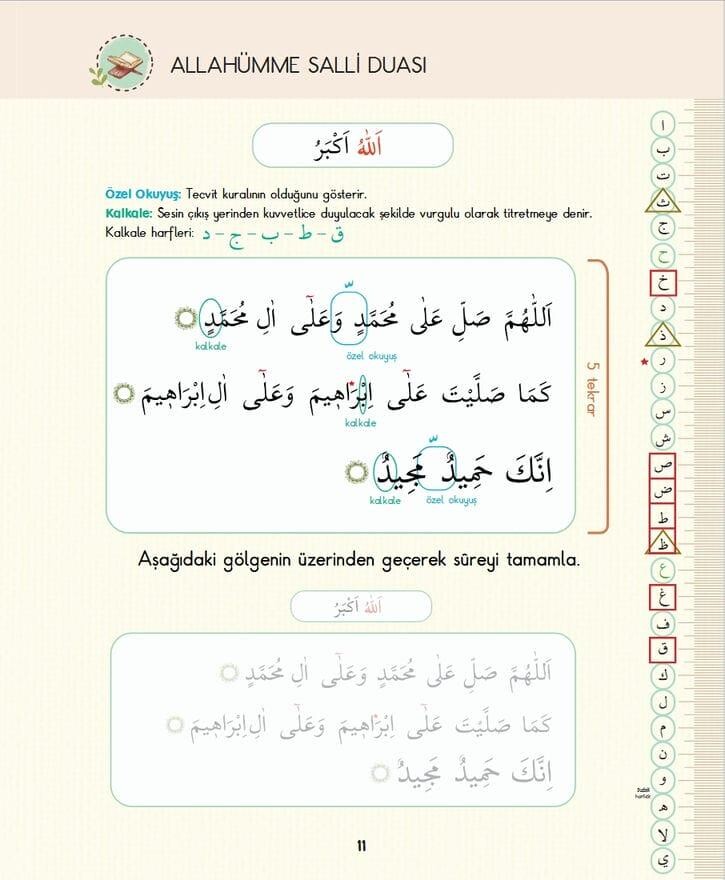 ALLAHÜMME SALLİ DUASI
اَللّٰهُ اَكْبَرُ
Özel Okuyuş: Tecvit kuralının olduğunu gösterir.
Kalkale: Sesin çıkış yerinden kuvvetlice duyulacak şekilde vurgulu olarak titretmeye denir.
Kalkale harfleri: ق – ط – ب – ج – د
اَللّٰهُمَّ صَلِّ عَلٰى مُحَمَّدٍ وَعَلٰٓى اٰلِ مُحَمَّدٍ
kalkale
özel okuyuş
كَمَا صَلَّيْتَ عَلٰٓى اِبْرَاهٖيمَ وَعَلٰٓى اٰلِ اِبْرَاهٖيمَ
kalkale
اِنَّكَ حَمٖيدٌ مَجٖيدٌ
kalkale
özel okuyuş
5 tekrar
Aşağıdaki gölgenin üzerinden geçerek sûreyi tamamla.
اَللّٰهُ اَكْبَرُ
اَللّٰهُمَّ صَلِّ عَلٰى مُحَمَّدٍ وَعَلٰٓى اٰلِ مُحَمَّدٍ
كَمَا صَلَّيْتَ عَلٰٓى اِبْرَاهٖيمَ وَعَلٰٓى اٰلِ اِبْرَاهٖيمَ
اِنَّكَ حَمٖيدٌ مَجٖيدٌ
11
ا
ب
ت
ث
ج
ح
خ
د
ذ
ر
ز
س
ش
ص
ض
ط
ظ
ع
غ
ف
ق
ك
ل
م
ن
و
ه
لا
ي